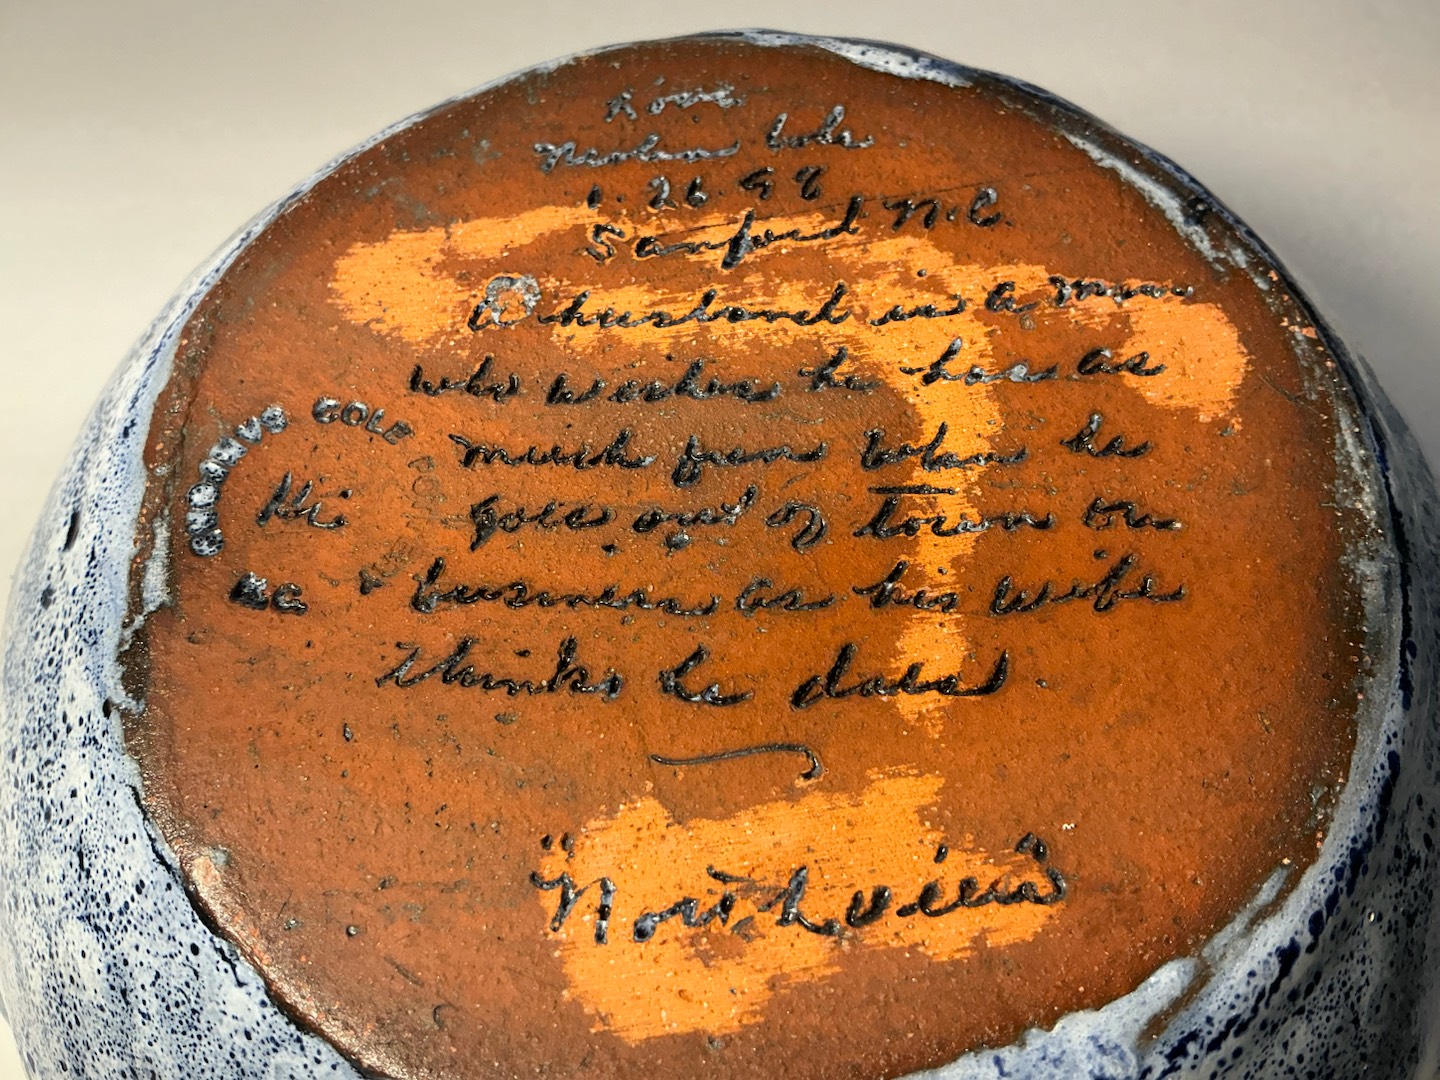 Love
Neolia Cole
1. 26. 98
Sanford N.C.
A husband is a man
who wishes he has as
much fun when he
goes out of town on
business as his wife
thinks he does.
COLE
Hi
"Northview"